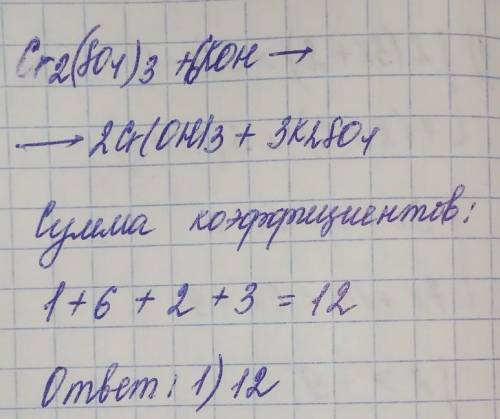 Cr2(SO4)3 + 6KOH →
→ 2Cr(OH)3 + 3K2SO4
Сумма коэффициентов:
1 + 6 + 2 + 3 = 12
Ответ: 1) 12